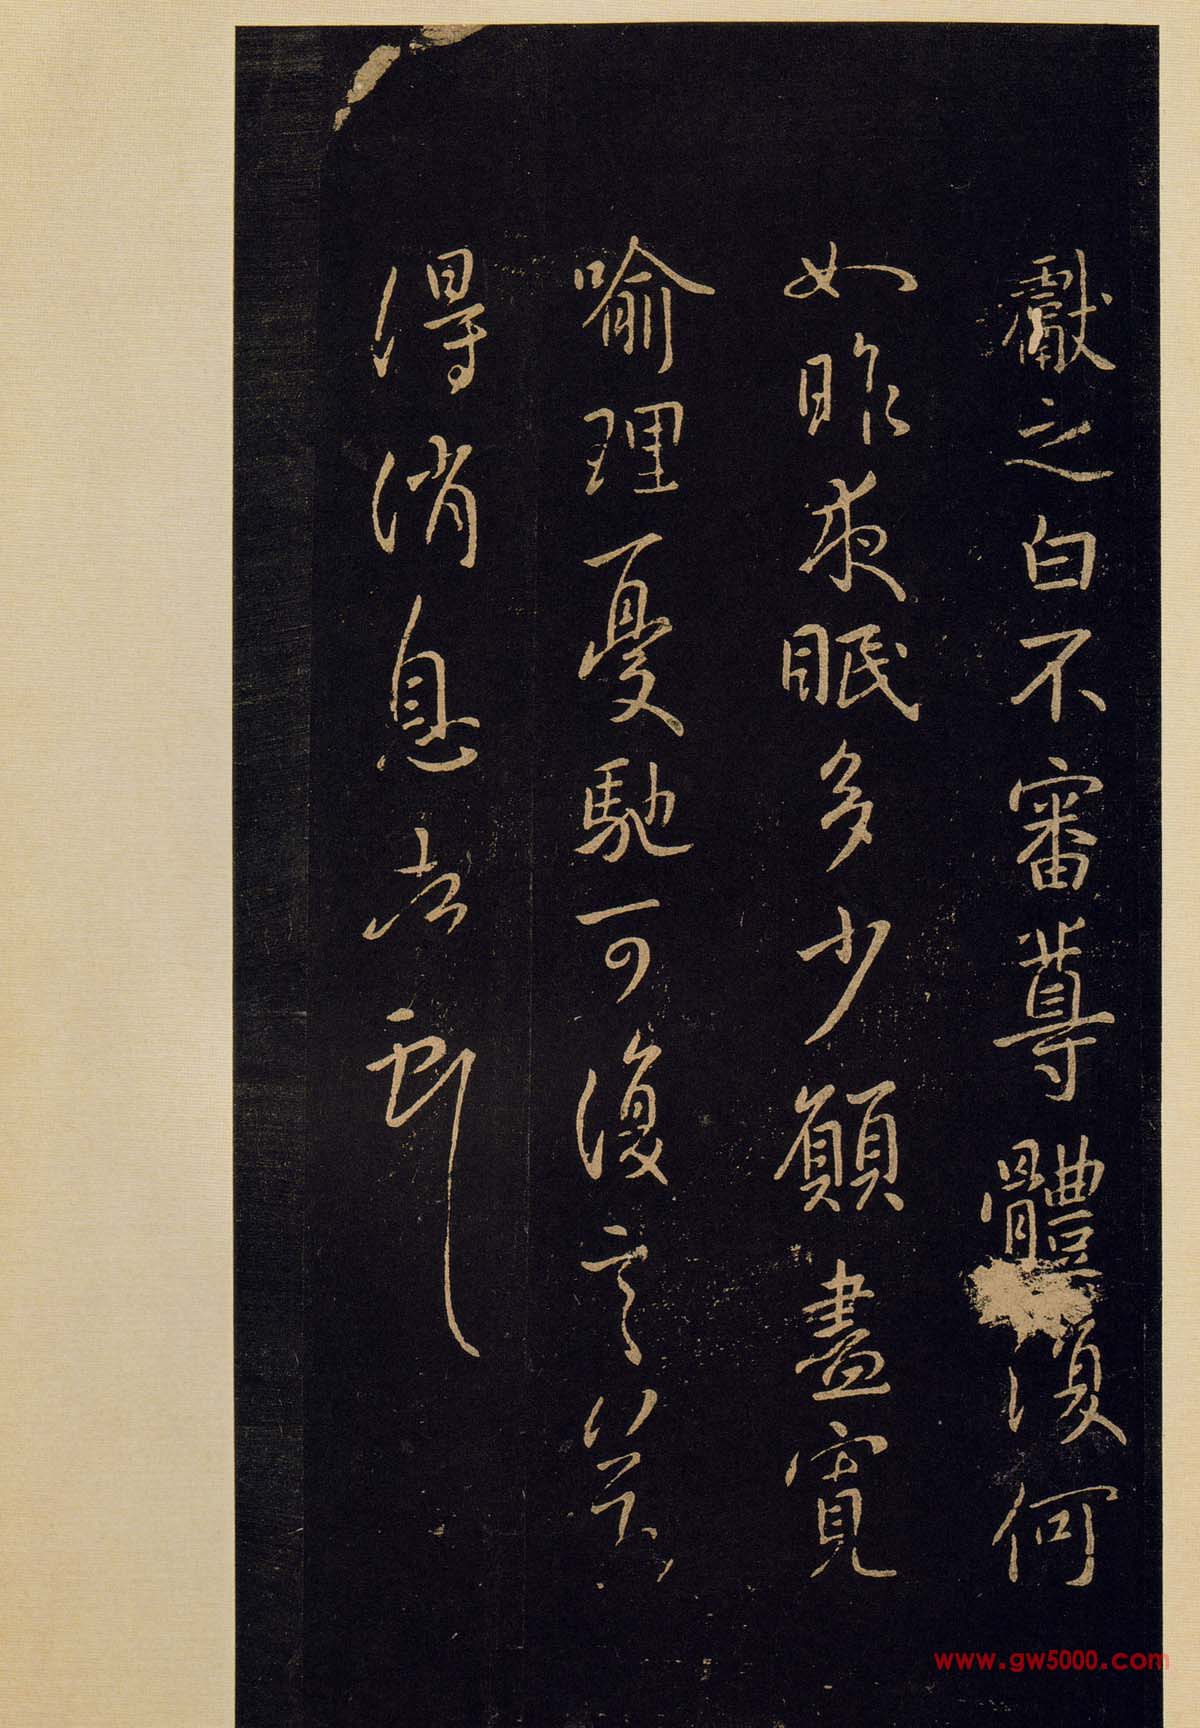 獻之白不審尊體復何
如昨來眠多少願盡寬
喻理憂馳可復言婢
得消息告慰
www.gw5000.com